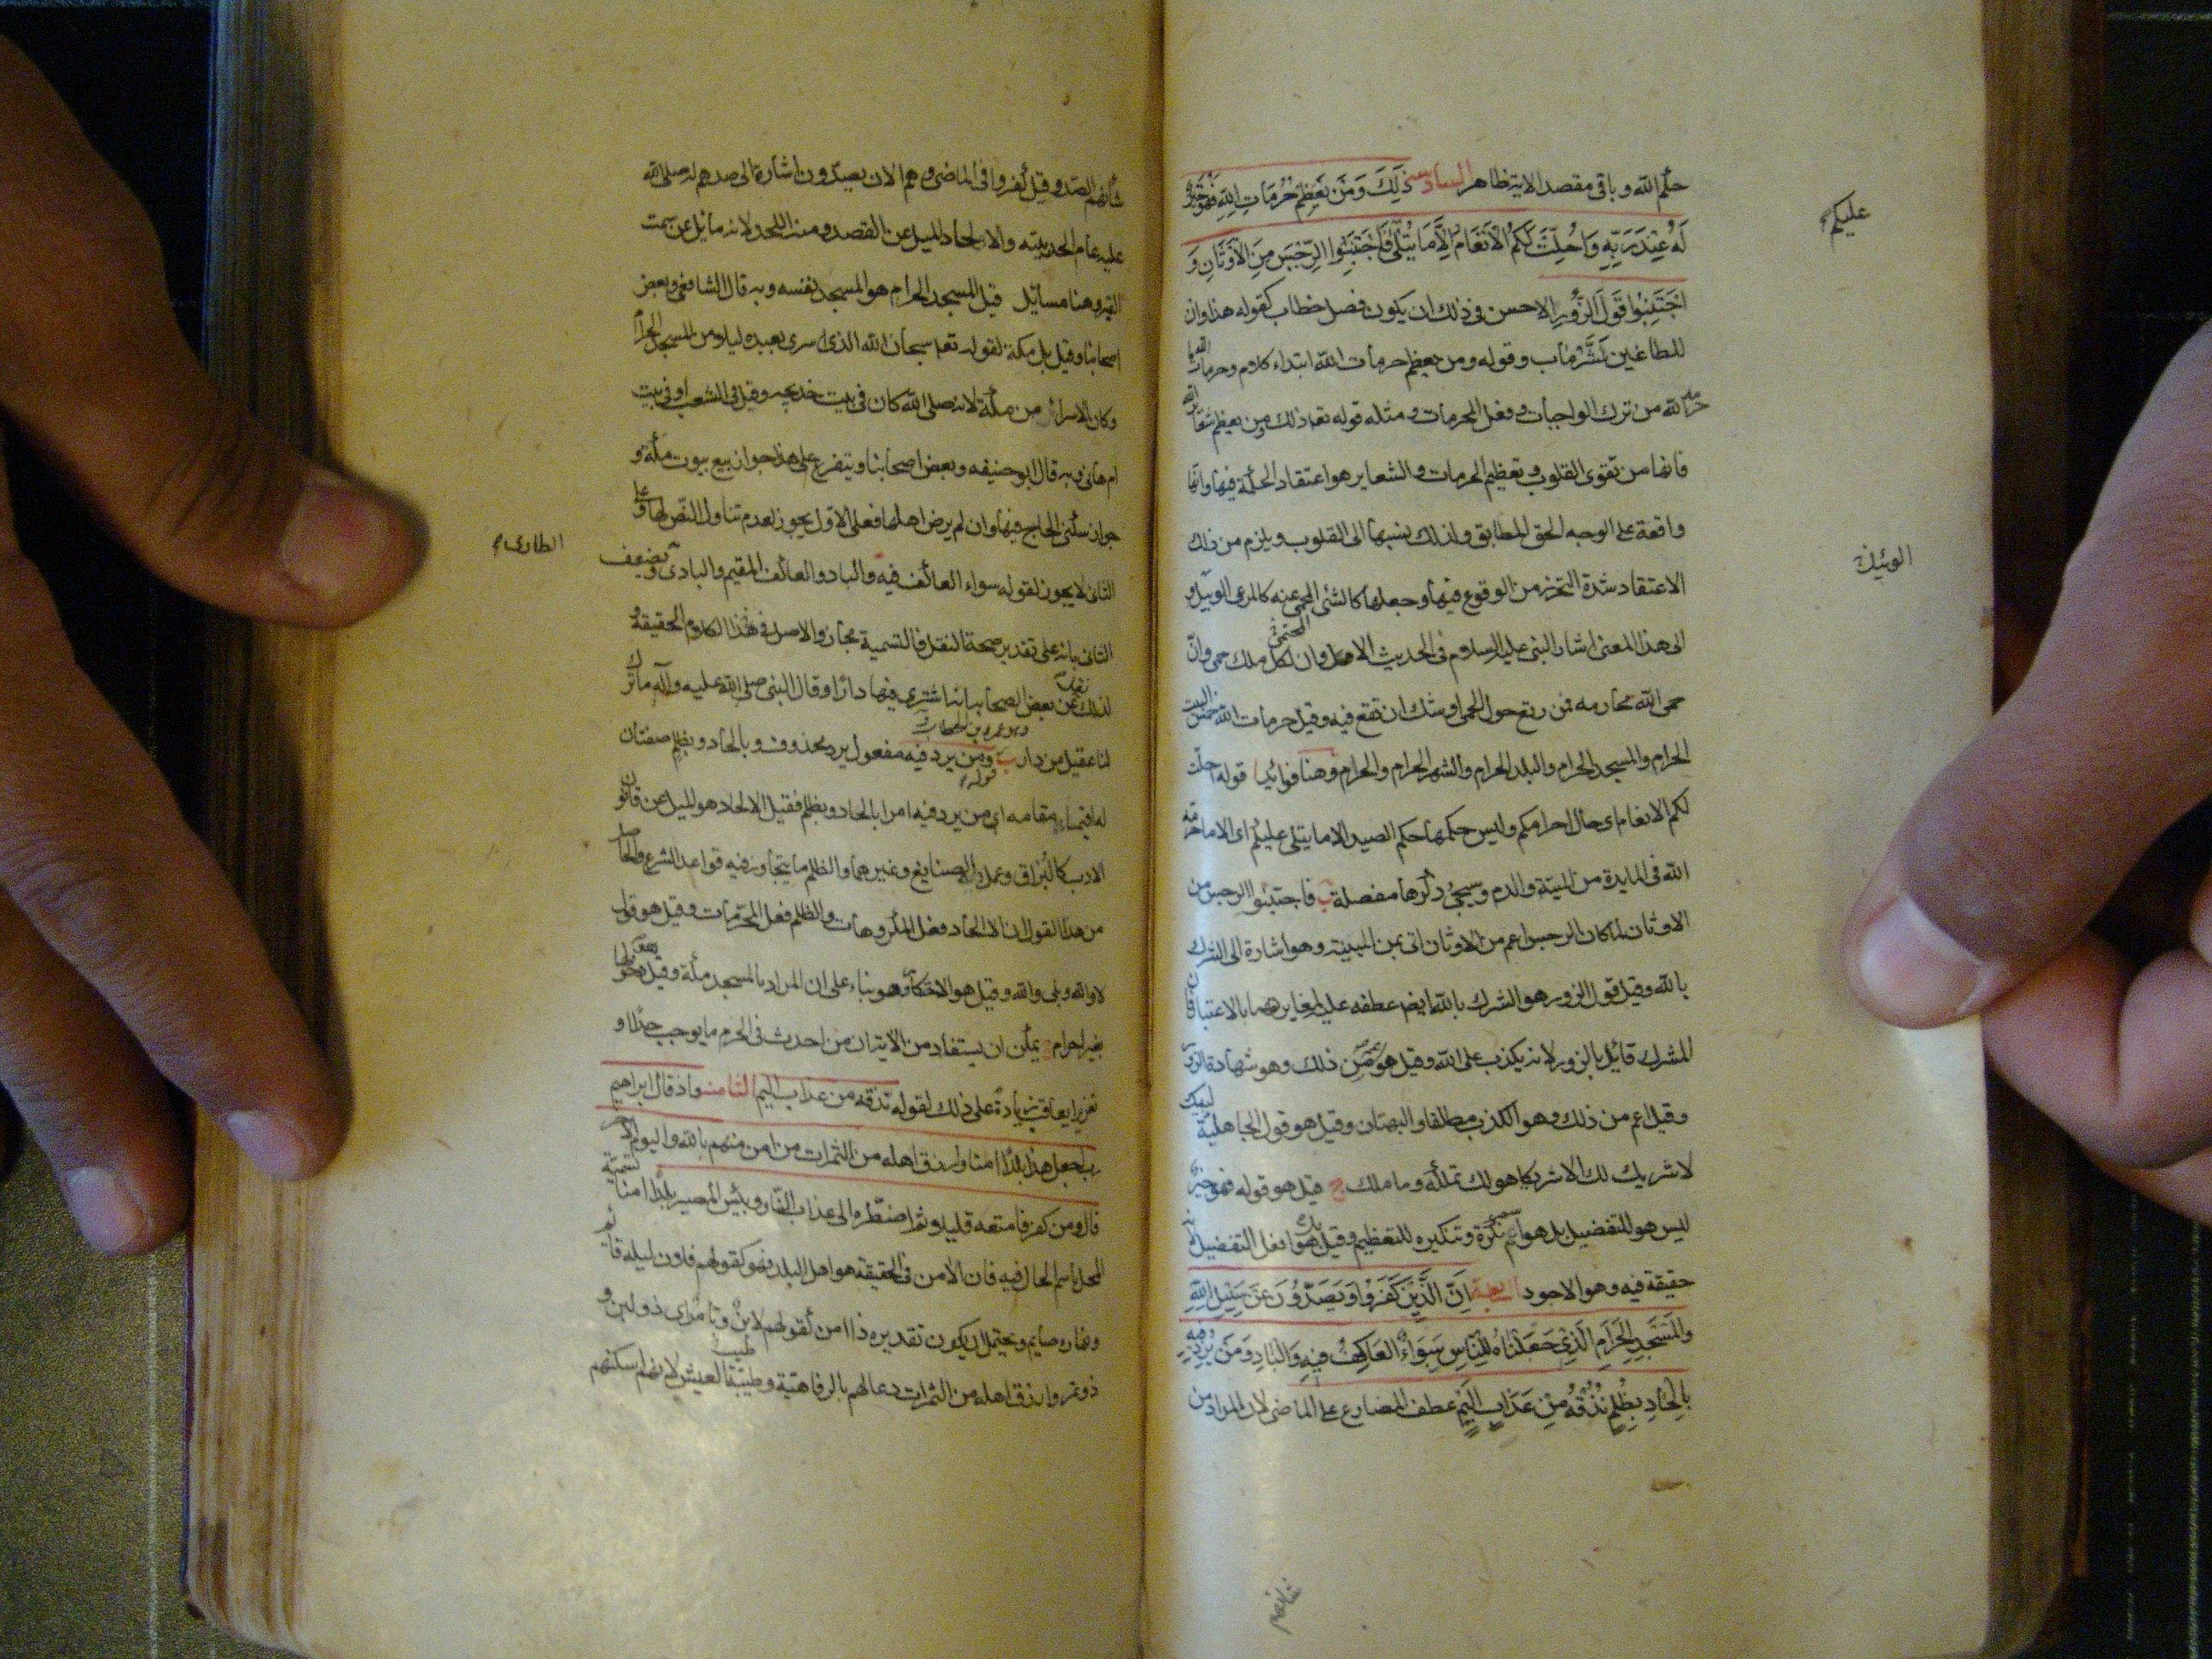 حكم الله و باقى مقصد الاية ظاهر السادسة ذَلِكَ وَمَن يُعَظِّمْ حُرُمَاتِ اللهِ فَهُوَ خَيْرٌ
عليكم
لَهُ عِنْدَ رَبِّهِ وَاُحِلَّتْ لَكُمُ الْاَنْعَامُ اِلَّا مَا يُتْلَى فَاجْتَنِبُوا الرِّجْسَ مِنَ الْاَوْثَانِ وَ
اجْتَنِبُوا قَوْلَ الزُّورِ الاحسن فى ذلك ان يكون فصل خطاب كقوله هذا وان
للطاغين لَشَرَّ مَاب و قوله ومن يعظم حرمات الله ابتداء كلام وحرمات الله ما
حرمه الله من ترك الواجبات وفعل المحرمات و مثله قوله تعا ذلك ومن يعظم شعائر الله
فانها من تقوى القلوب و تعظيم الحرمات والشعاير هو اعتقاد الحكمة فيها وانها
واقعة على الوجه الحق المطابق ولذلك ينسبها الى القلوب ويلزم من ذلك
الوبيل
الاعتقاد شدة التحرز من الوقوع فيها وجعلها كالشئ المحمى عنه كالمرعى الوبيل و
الى هذا المعنى اشار النبى عليه السلام فى الحديث الا وان لكل ملك حمى وانّ
حمى الله محارمه فمن رتع حول الحمى اوشك ان يقع فيه وقيل حرمات الله خمس البيت
الحرام والمسجد الحرام والبلد الحرام والشهر الحرام والحرام وهنا فوائد ا قوله احلت
لكم الانعام اى حال احرامكم وليس حكمها حكم الصيد الا ما يتلى عليكم اى الا ما حرمه
الله فى المايدة من الميتة والدم وسيجئ ذكرها مفصلة ب فاجتنبوا الرجس من
الاوثان لما كان الرجس اعم من الاوثان اتى بمن المبينة وهو اشارة الى الشرك
بالله وقيل قول الزور هو الشرك بالله ايضا عطفه عليه لمغايرهما بالاعتبار فان
المشرك قائل بالزور لانه يكذب على الله وقيل هو من ذلك وهو شهادة الزور
وقيل اعم من ذلك وهو الكذب مطلقا والبهتان وقيل هو قول الجاهلية لبيك
لا شريك لك الا شريكا هو لك تملكه وما ملك ج قيل هو قوله فهو خير
ليس هو للتفضيل بل هو اسم نكرة وتنكيره للتعظيم وقيل هو افعل التفضيل
حقيقة فيه وهو الاجود السابعة اِنَّ الَّذِيْنَ كَفَرُوا وَيَصُدُّوْنَ عَنْ سَبِيْلِ اللهِ
وَالْمَسْجِدِ الْحَرَامِ الَّذِى جَعَلْنَاهُ لِلنَّاسِ سَوَاءً الْعَاكِفُ فِيهِ وَالْبَادِ وَمَنْ يُرِدْ فِيهِ
بِاِلْحَادٍ بِظُلْمٍ نُذِقْهُ مِنْ عَذَابٍ اَلِيْمٍ عطف المضارع على الماضى لان المراد من
شانهم
شأنهم الصد وقيل كفروا فى الماضى وهم الان يصدون اشارة الى صدهم له صلى الله
عليه عام الحديبية والالحاد الميل عن القصد ومنه اللحد لانه مائل عن سمت
القبر وهنا مسائل قيل المسجد الحرام هو المسجد نفسه وبه قال الشافعى وبعض
اصحابنا وقيل بل مكة لقوله تعا سبحان الذى اسرى بعبده ليلا من المسجد الحرام
وكان الاسراء من مكة لانه صلى الله كان فى بيت خديجه وقيل فى الشعب او فى بيت
ام هانى وبه قال ابو حنيفه وبعض اصحابنا ويتفرع على هذا جواز بيع بيوت مكة و
جواز سكنى الحاج فيها وان لم يرض اهلها فعلى الاول يجوز لعدم تناول النص لها وعلى
الطارى
الثانى لا يجوز لقوله سواء العاكف فيه والباد والعاكف المقيم والبادى ويضعف
الثانى بانه على تقدير صحة النقل فالتسمية مجاز والاصل فى الكلام الحقيقة و
لذلك نقل عن بعض الصحابة انه اشترى فيها دارا وقال النبى صلى الله عليه وآله ما ترك
وهو عمر بن الخطاب
لنا عقيل من دار ب قوله ومن يرد فيه مفعول يرد محذوف و بالحاد و بظلم صفتان
له اقيما مقامه اى من يرد فيه امرا بالحاد وبظلم فقيل الالحاد هو الميل عن قانون
الادب كالبزاق وعمل الصنايع وغيرهما والظلم ما يتجاوز فيه قواعد الشرع والحاصل
من هذا القول ان الالحاد فعل المكروهات والظلم فعل المحرمات وقيل هو قول
لا والله وبلى والله وقيل هو الاحتكار وهو بناء على ان المراد بالمسجد مكة وقيل هو دخولها
بغير احرام ج يمكن ان يستفاد من الاية ان من احدث فى الحرم ما يوجب حدا او
تعزيرا يعاقب زيادة على ذلك لقوله نذقه من عذاب اليم الثامنه واذ قال ابراهيم
رب اجعل هذا بلدا امنا وارزق اهله من الثمرات من امن منهم بالله واليوم الاخر
قال ومن كفر فامتعه قليلا ثم اضطره الى عذاب النار وبئس المصير بلدا امنا تسمية
المحل باسم الحال فيه فان الامن فى الحقيقة هو اهل البلد فهو كقولهم فلان ليله قائم
ونهاره صايم ويحتمل ان يكون تقديره ذا امن كقولهم لابن وتامر اى ذو لبن و
ذو تمر وارزق اهله من الثمرات دعا لهم بالرفاهية وطيب العيش لانهم اسكنهم